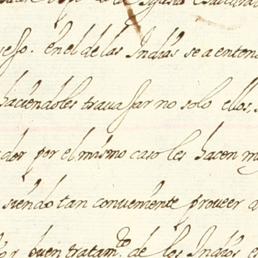 la Iglesia
esso. en el de las Indias se a enten
haciendoles trauajar no solo ellos,
por el mismo caso les hacen m
siendo tan conueniente proueer a
buen tratamto. de los Indios e